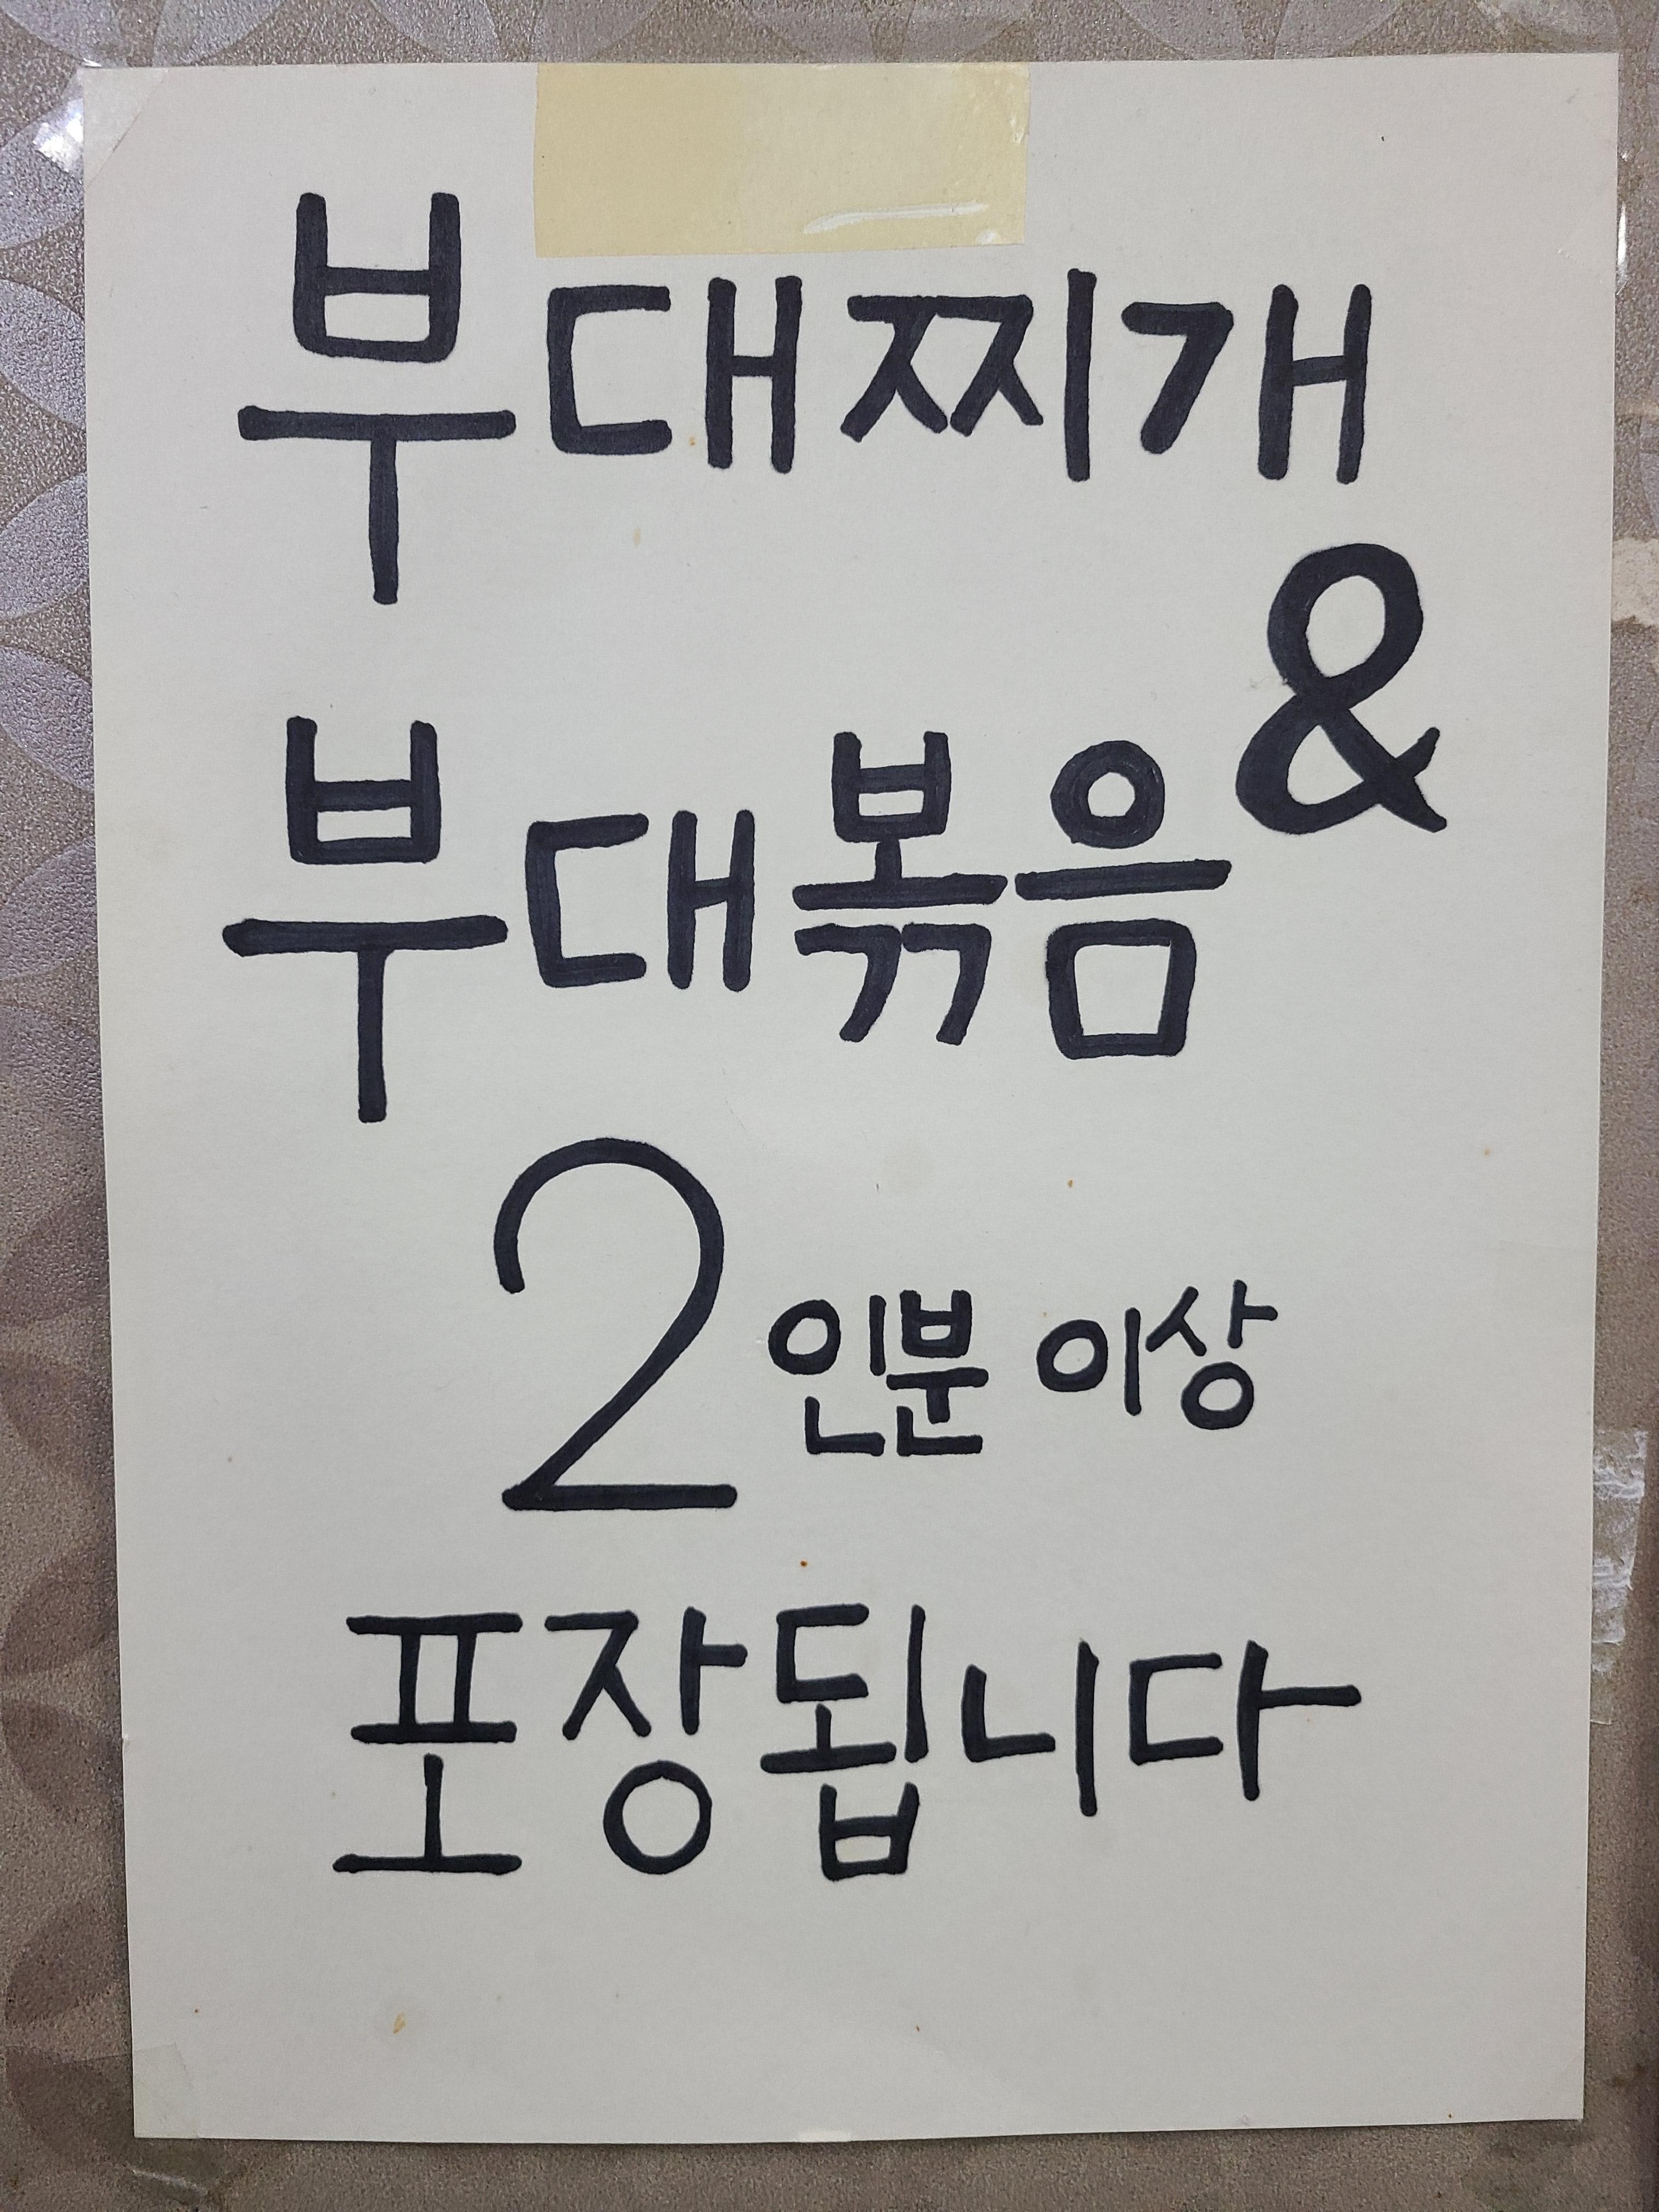 부대찌개
&
부대볶음
2인분 이상
포장됩니다